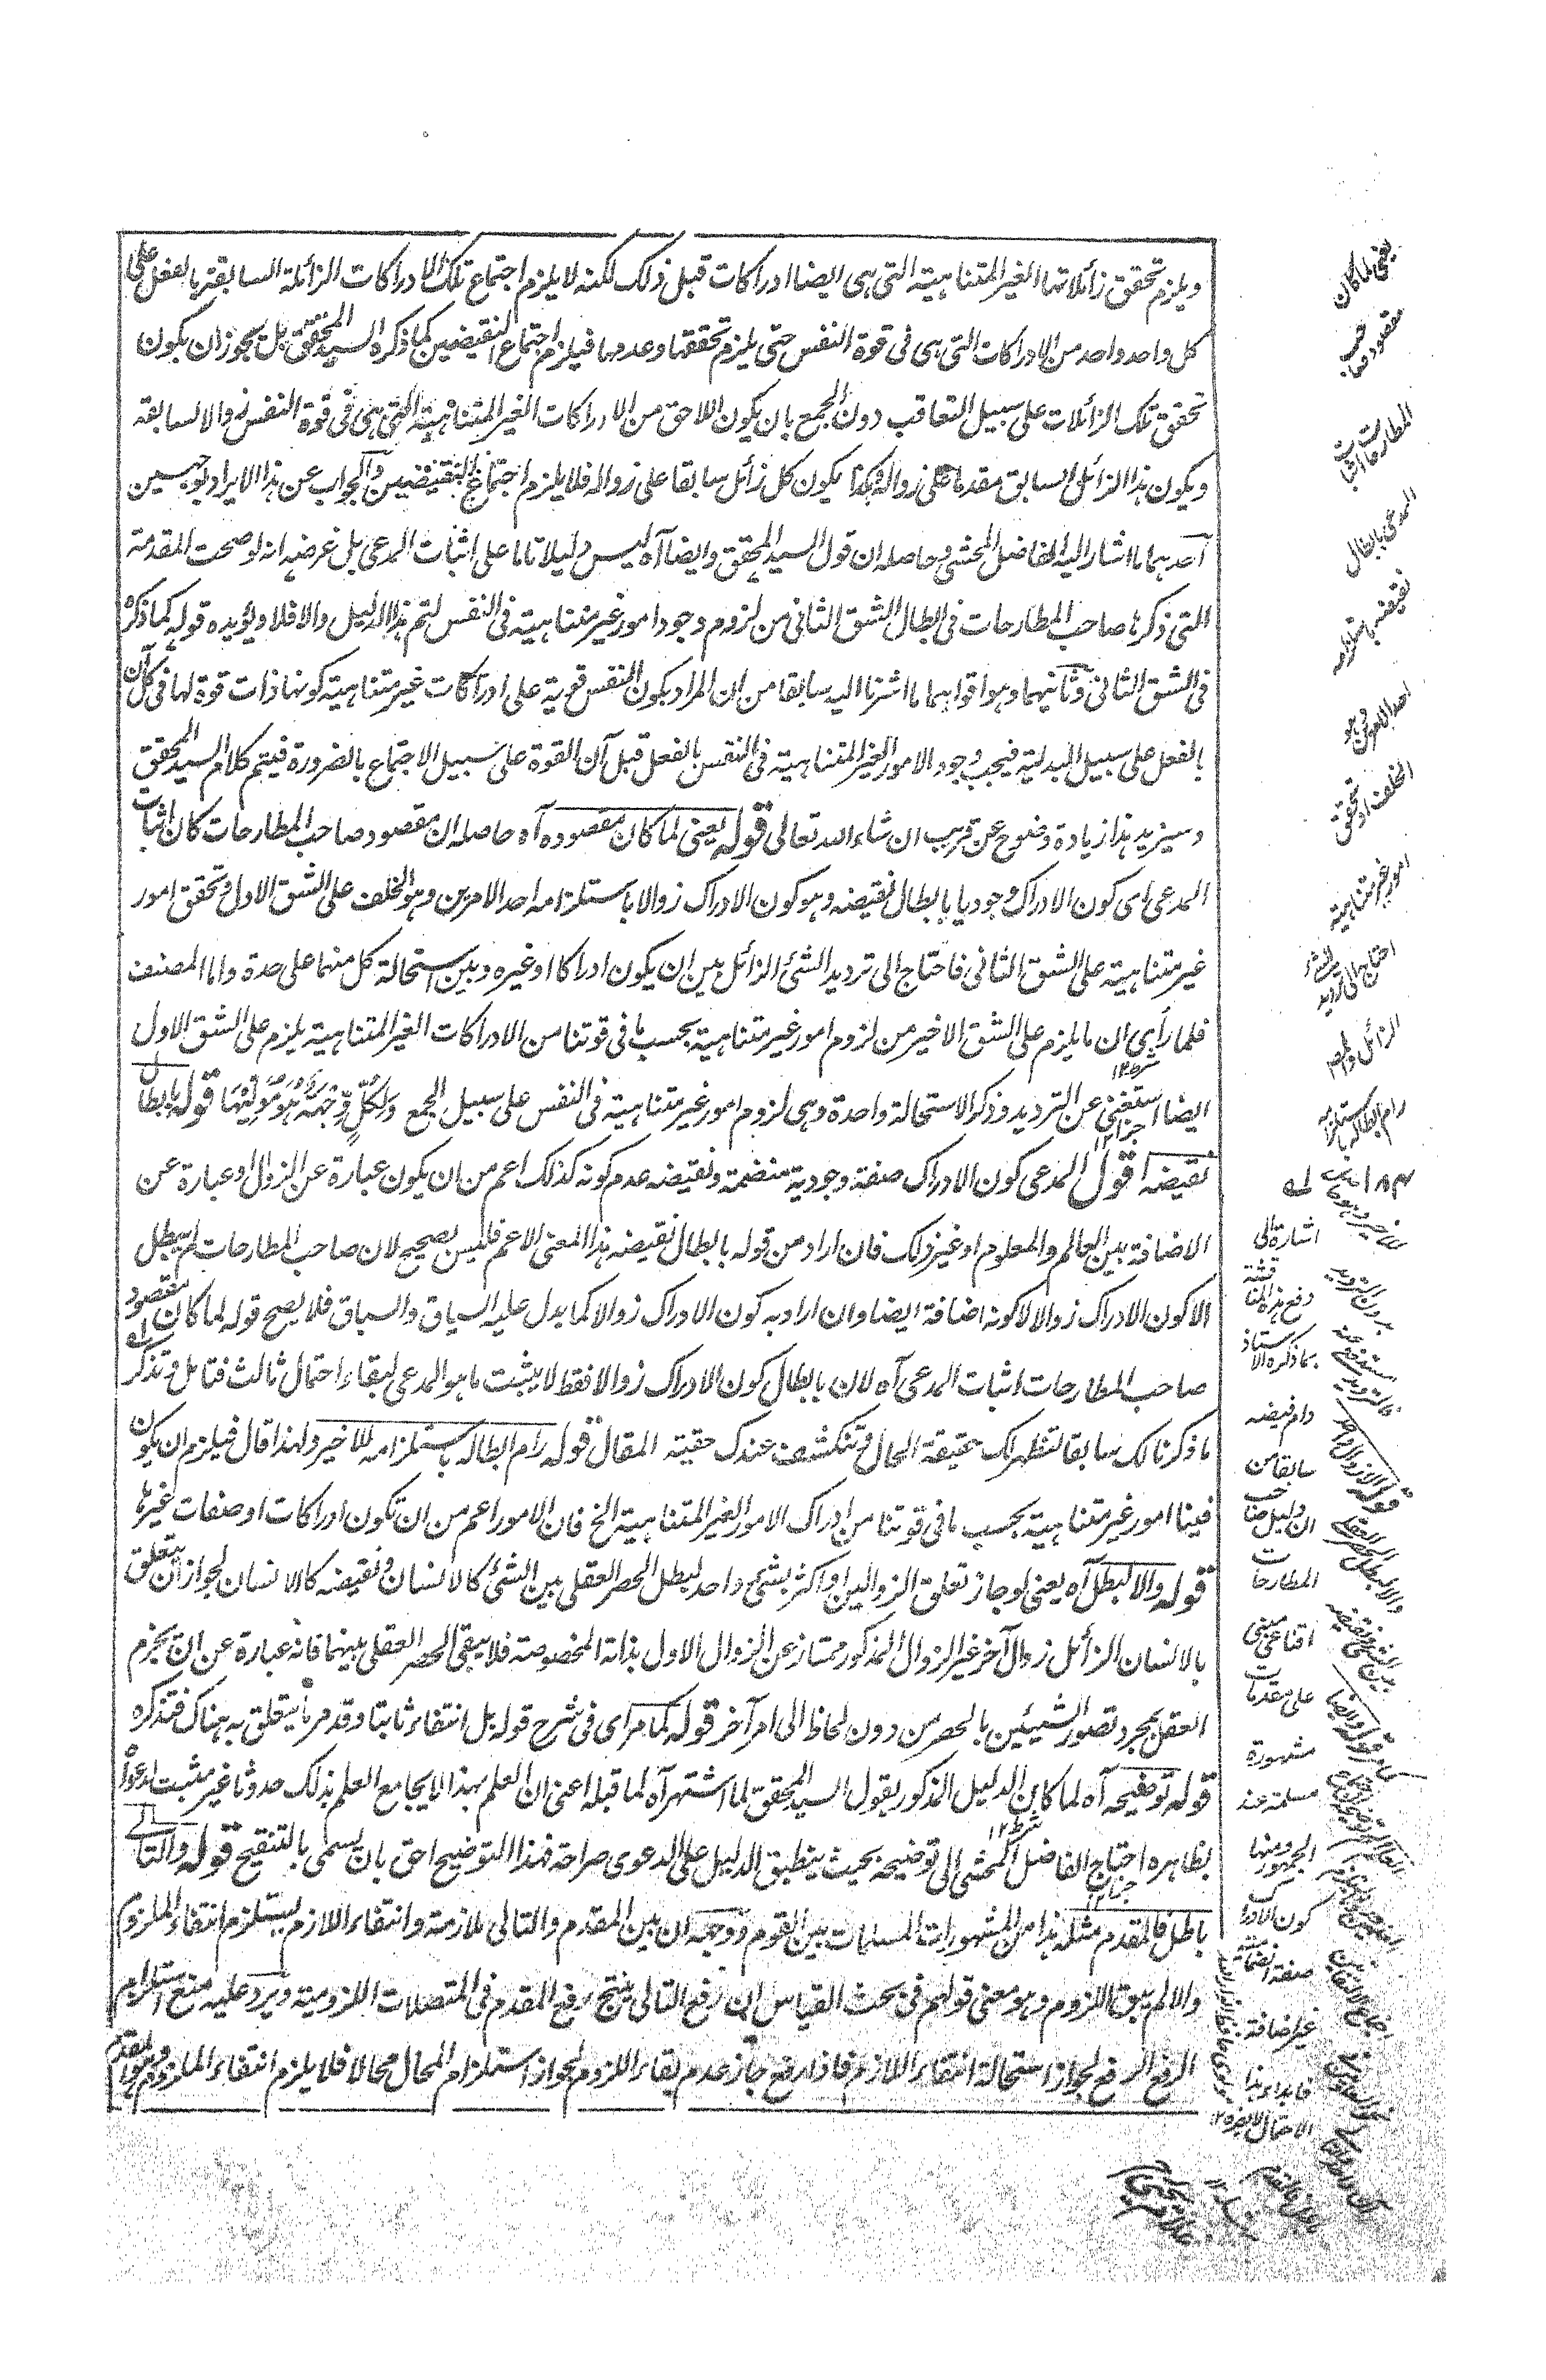 ويلزم تحقق زائلاتها الغير المتناهية التى هى ايضا ادراكات قبل ذلك لكنه لا يلزم اجتماع تلك الادراكات الزائلة السابقة بالفعل على
كل واحد واحد من الادراكات التى هى فى قوة النفس حتى يلزم تحققها وعدمها فيلزم اجتماع النقيضين كما ذكره السيد المحقق بل يجوز ان يكون
تحقق تلك الزائلات على سبيل التعاقب دون الجمع بان يكون اللاحق من الادراكات الغير المتناهية التى هى فى قوة النفس زوالا لسابقه
ويكون هذا الزائل السابق مقدما على زواله وهكذا يكون كل زائل سابقا على زواله فلا يلزم اجتماع النقيضين والجواب عن هذا الايراد بوجهين
احدهما ما اشار اليه الفاضل المحشى وحاصله ان قول السيد المحقق وايضا آه ليس دليلا تاما على اثبات المدعى بل غرضه انه لو صحت المقدمة
التى ذكرها صاحب المطارحات فى ابطال الشق الثانى من لزوم وجود امور غير متناهية فى النفس لتم هذا الدليل والا فلا ويؤيده قوله كما ذكره
فى الشق الثانى وثانيهما وهو اقواهما ما اشرنا اليه سابقا من ان المراد بكون النفس قوية على ادراكات غير متناهية كونها ذات قوة لها فى كل آن
بالفعل على سبيل البدلية فيجب وجود الامور الغير المتناهية فى النفس بالفعل قبل آن القوة على سبيل الاجتماع بالضرورة فيتم كلام السيد المحقق
وسيزيد هذا زيادة وضوح عن قريب ان شاء الله تعالى قوله يعنى لما كان مقصوده آه حاصله ان مقصود صاحب المطارحات كان اثبات
المدعى اى كون الادراك وجوديا بابطال نقيضه وهو كون الادراك زوالا باستلزامه احد الامرين وهو الخلف على الشق الاول وتحقق امور
غير متناهية على الشق الثانى فاحتاج الى ترديد الشئ الزائل بين ان يكون ادراكا او غيره وبين استحالة كل منهما على حدة واما المصنف
فلما رأى ان ما يلزم على الشق الاخير من لزوم امور غير متناهية بحسب ما فى قوتنا من الادراكات الغير المتناهية يلزم على الشق الاول
ايضا استغنى عن الترديد وذكر الاستحالة واحدة وهى لزوم امور غير متناهية فى النفس على سبيل الجمع وَلِكُلٍّ وِّجْهَةٌ هُوَ مُوَلِّيْهَا قوله بابطال
نقيضه اقول المدعى كون الادراك صفة وجودية منضمة ونقيضه عدم كونه كذلك اعم من ان يكون عبارة عن الزوال او عبارة عن
الاضافة بين العالم والمعلوم او غير ذلك فان اراد من قوله بابطال نقيضه هذا المعنى الاعم فليس بصحيح لان صاحب المطارحات لم يبطل
الا كون الادراك زوالا لا كونه اضافة ايضا وان اراد به كون الادراك زوالا كما يدل عليه السياق والسباق فلا يصح قوله لما كان مقصود
صاحب المطارحات اثبات المدعى آه لان بابطال كون الادراك زوالا فقط لا يثبت ما هو المدعى لبقاء احتمال ثالث فتامل وتذكر
ما ذكرنا لك سابقا لتظهر لك حقيقة الحال وتنكشف عندك حقية المقال قوله رام ابطاله باستلزامه للاخير ولهذا قال فيلزم ان يكون
فينا امور غير متناهية بحسب ما فى قوتنا من ادراك الامور الغير المتناهية الخ فان الامور اعم من ان تكون ادراكات او صفات غيرها
قوله والا لبطل آه يعنى لو جاز تعلق الزوالين او اكثر بشئ واحد ليبطل الحصر العقلى بين الشئ كالانسان ونقيضه كالا انسان لجواز ان يتعلق
بالانسان الزائل زوال آخر غير الزوال المذكور ممتاز عن الزوال الاول بذاته المخصوصة فلا يبقى الحصر العقلى بينهما فانه عبارة عن ان يجزم
العقل بمجرد تصور الشيئين بالحصر من دون لحاظ الى امر آخر قوله كما مر اى فى شرح قوله بل انتفاء ثابتا وقد مر ما يتعلق به هناك فتذكره
قوله توضيحه آه لما كان الدليل المذكور بقول السيد المحقق لما اشتهر آه لما قبله اعنى ان العلم بهذا لا يجامع العلم بذلك حدوثا غير مثبت لدعواه
بظاهره احتاج الفاضل المحشى الى توضيحه بحيث ينطبق الدليل على الدعوى صراحة فهذا التوضيح احق بان يسمى بالتنقيح قوله والتالى
باطل فالمقدم مثله هذا من المشهورات المسلمات بين القوم ووجهه ان بين المقدم والتالى ملازمة وانتفاء اللازم يستلزم انتفاء الملزوم
والا لم يبق اللزوم وهو معنى قولهم فى بحث القياس ان رفع التالى ينتج رفع المقدم فى المتصلات اللزومية ويرد عليه منع استلزام
الرفع الرفع لجواز استحالة انتفاء اللازم فاذا رفع جاز عدم بقاء اللزوم لجواز استلزام المحال محالا فلا يلزم انتفاء الملزوم وهو المقدم
يعنى لما كان
مقصود صاحب
المطارحات اثبات
المدعى بابطال
نقيضه باستلزامه
احد الامرين وهو
الخلف او تحقق
امور غير متناهية
احتاج الى ترديد الشئ
الزائل
رام ابطاله باستلزامه
اشارة الى
دفع هذه المناقشة
بما ذكره الاستاذ
دام فيضه
سابقا من
ان دليل صاحب
المطارحات
اقناعى مبنى
على مقدمات
مشهورة
مسلمة عند
الجمهور ومنها
كون الادراك
صفة انضمامية
غير اضافة
فابداء هذا
الاحتمال لا يضره ١٢